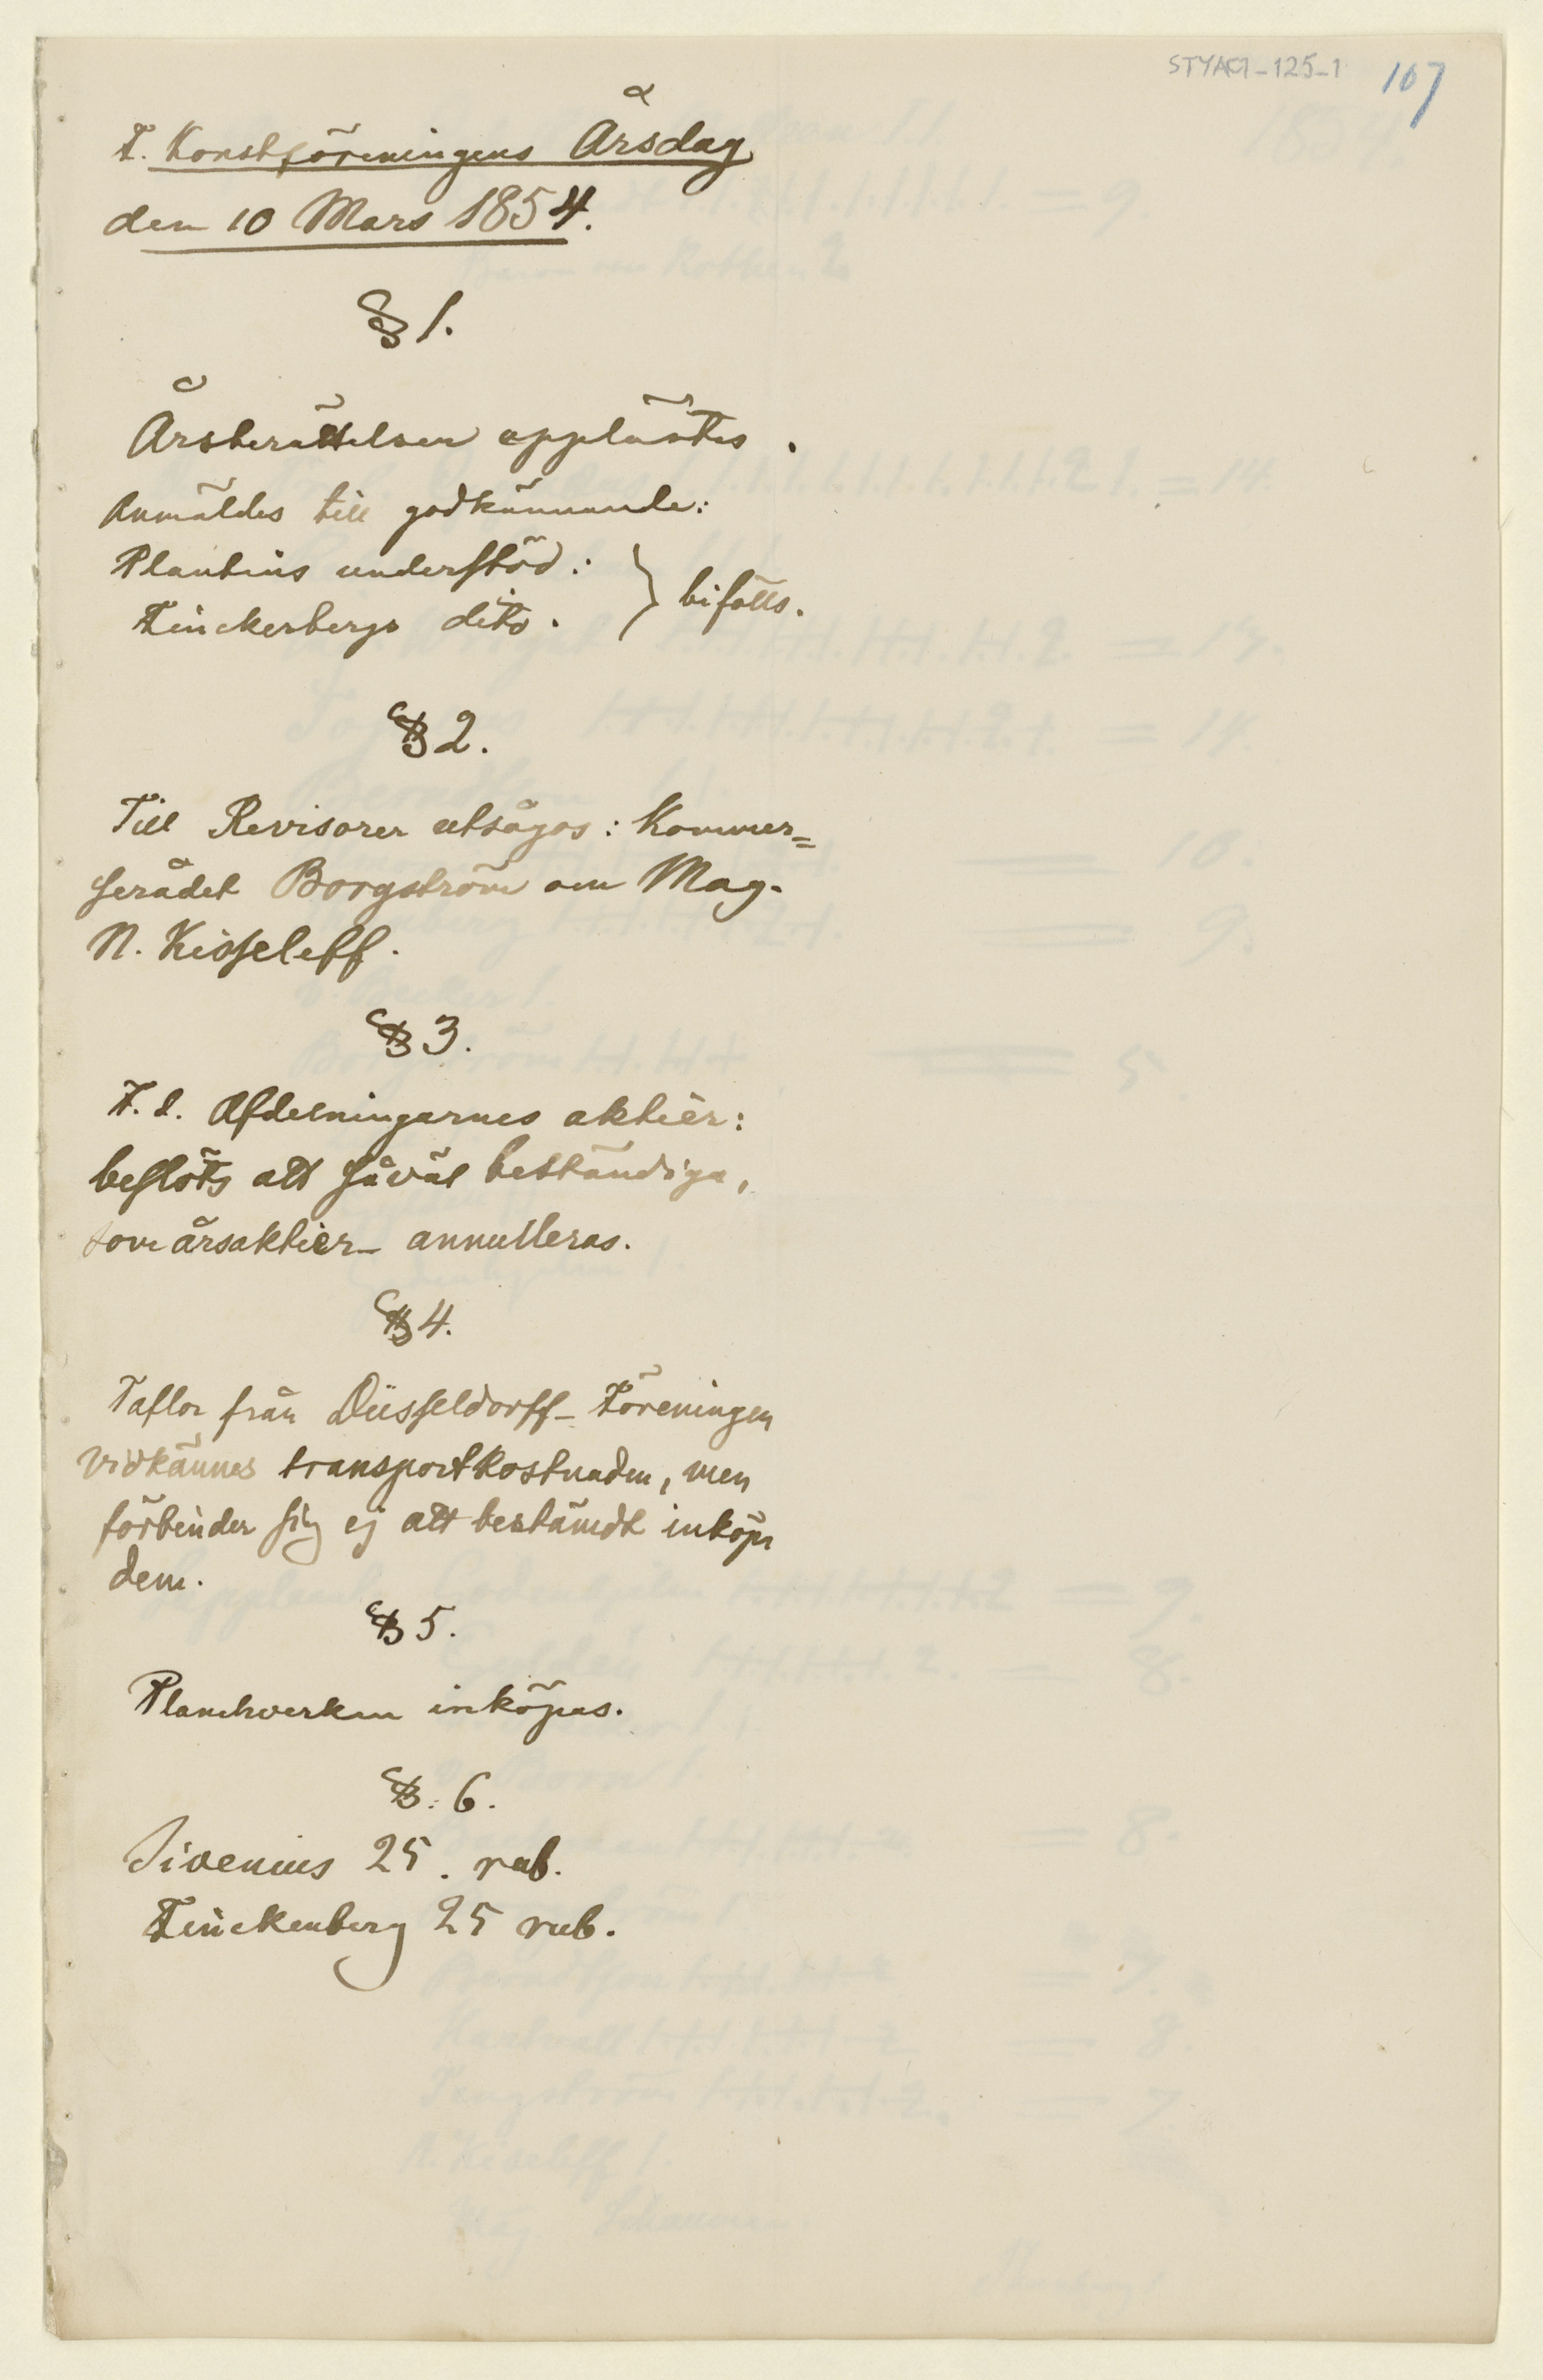 STYAC1-125-1 107
F. Konstföreningens Årsdag
den 10 Mars 1854.
§ 1.
Årsberättelsen upplästes.
Anmäldes till godkännande:
Plantins understöd: } bifölls.
Finckerbergs dito.
§ 2.
Till Revisorer utsågos: Kommer=
serådet Borgström om Mag.
N. Kisseleff.
§ 3.
F. d. Afdelningarnes aktier:
beslöts att såväl beständiga,
som årsaktier annulleras.
§ 4.
Taflor från Düsseldorff-Föreningen
vidkännes transportkostnaden, men
förbinder sig ej att bestämdt inköpa
dem.
§ 5.
Planchverken inköpas.
§: 6.
Sivenius 25. rub.
Finckenberg 25 rub.